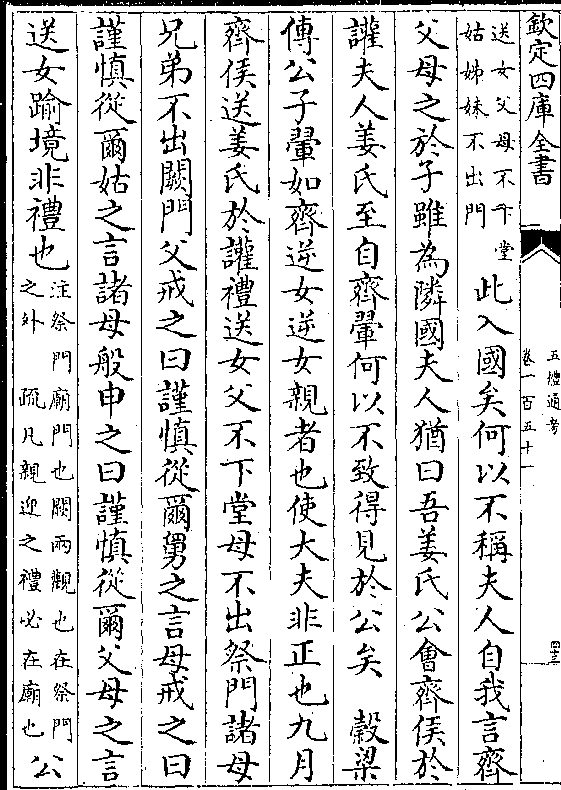 欽定四庫全書
五禮通考
卷一百五十一
四十三
送女父母不下堂
姑姊妹不出門
此入國矣何以不稱夫人自我言齊
父母之於子雖為隣國夫人猶曰吾姜氏公會齊侯於
讙夫人姜氏至自齊翬何以不致得見於公矣 穀梁
傳公子翬如齊逆女逆女親者也使大夫非正也九月
齊侯送姜氏於讙禮送女父不下堂母不出祭門諸母
兄弟不出闕門父戒之曰謹慎從爾舅之言母戒之曰
謹慎從爾姑之言諸母般申之曰謹慎從爾父母之言
送女踰境非禮也
注祭門廟門也闕兩觀也在祭門
之外 疏凡親迎之禮必在廟也
公